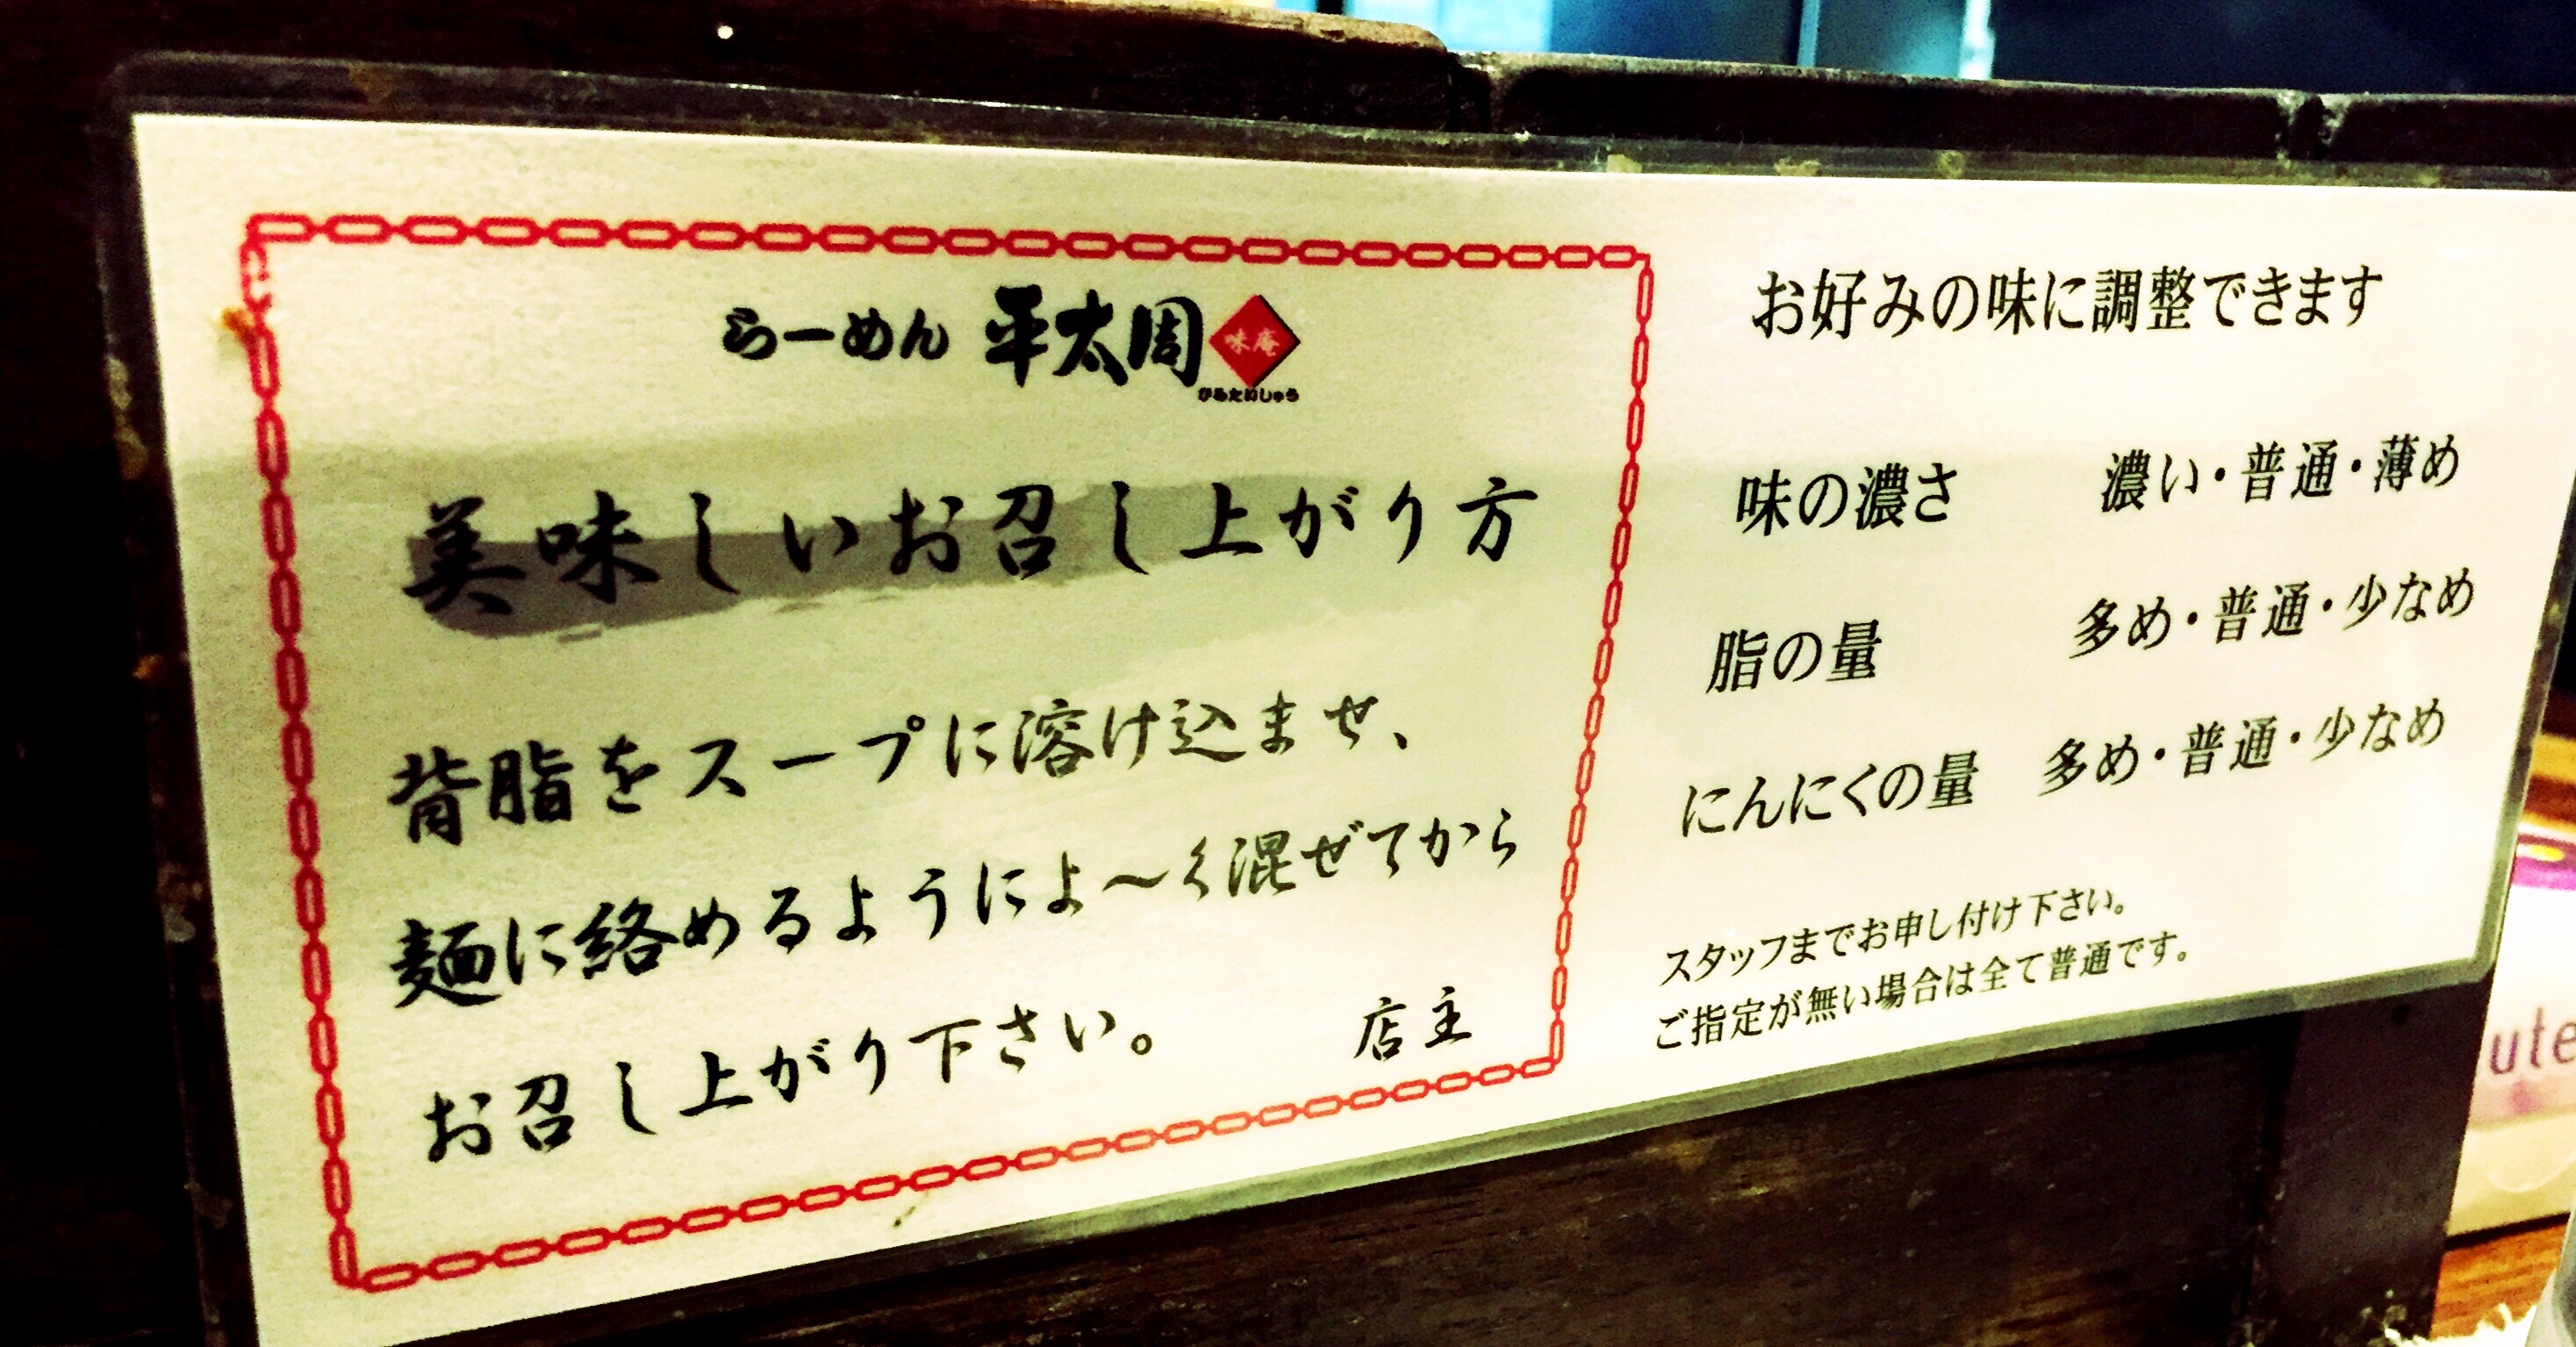 らーめん 平太周 味庵
びぁたいしゅう
美味しいお召し上がり方
背脂をスープに溶け込ませ、
麺に絡めるようによ〜く混ぜてから
お召し上がり下さい。 店主
お好みの味に調整できます
味の濃さ 濃い・普通・薄め
脂の量 多め・普通・少なめ
にんにくの量 多め・普通・少なめ
スタッフまでお申し付け下さい。
ご指定が無い場合は全て普通です。
ute